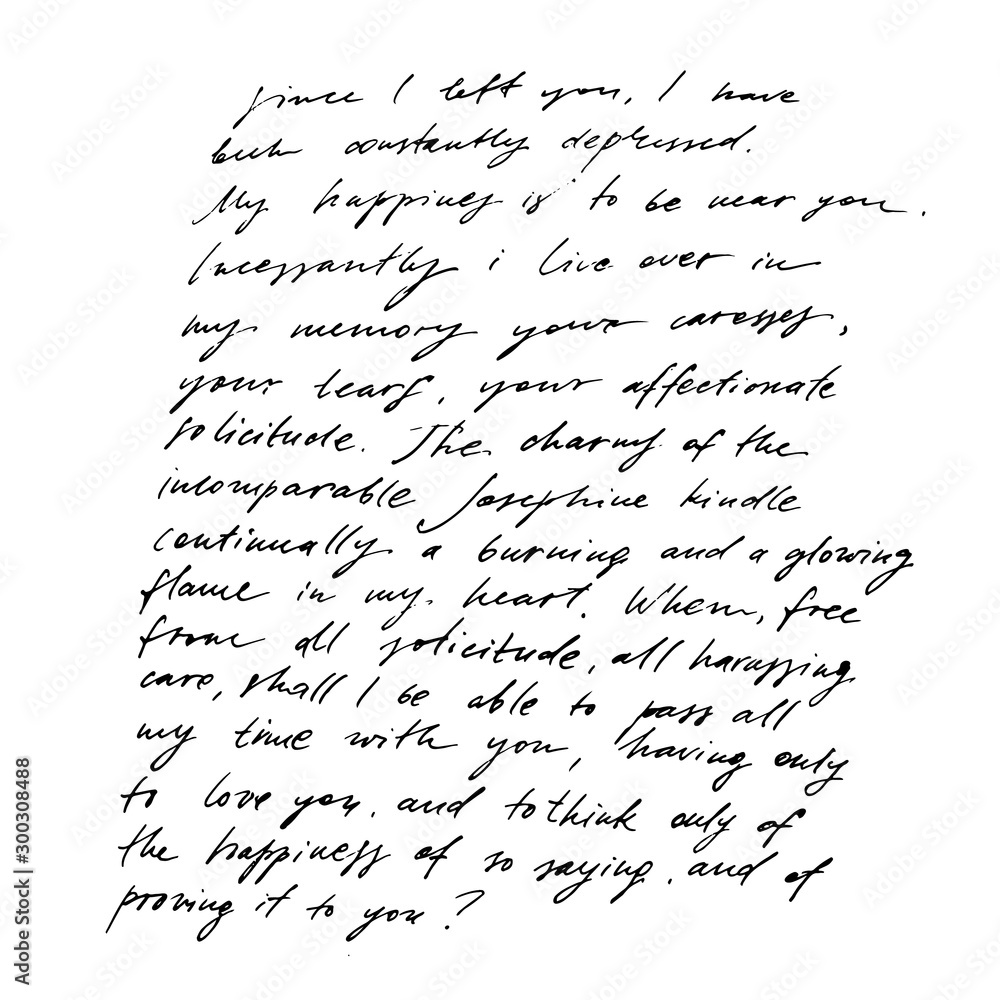 since I left you, I have
been constantly depressed.
My happines is to be near you.
Incessantly i live over in
my memory your caresses,
your tears, your affectionate
solicitude. The charms of the
incomparable Josephine kindle
continually a burning and a glowing
flame in my heart. When, free
from all solicitude, all harassing
care, shall I be able to pass all
my time with you, having only
to love you, and to think only of
the happiness of so saying, and of
proving it to you?
Adobe Stock | #300308488